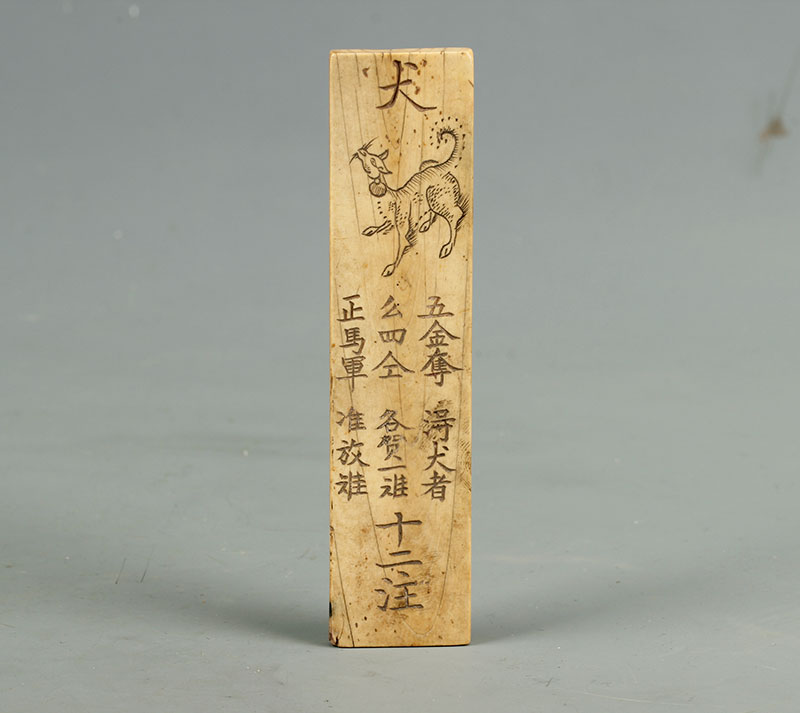 犬
五金奪
么四仝
正馬軍
淂犬者
各贺一
准放
十二注